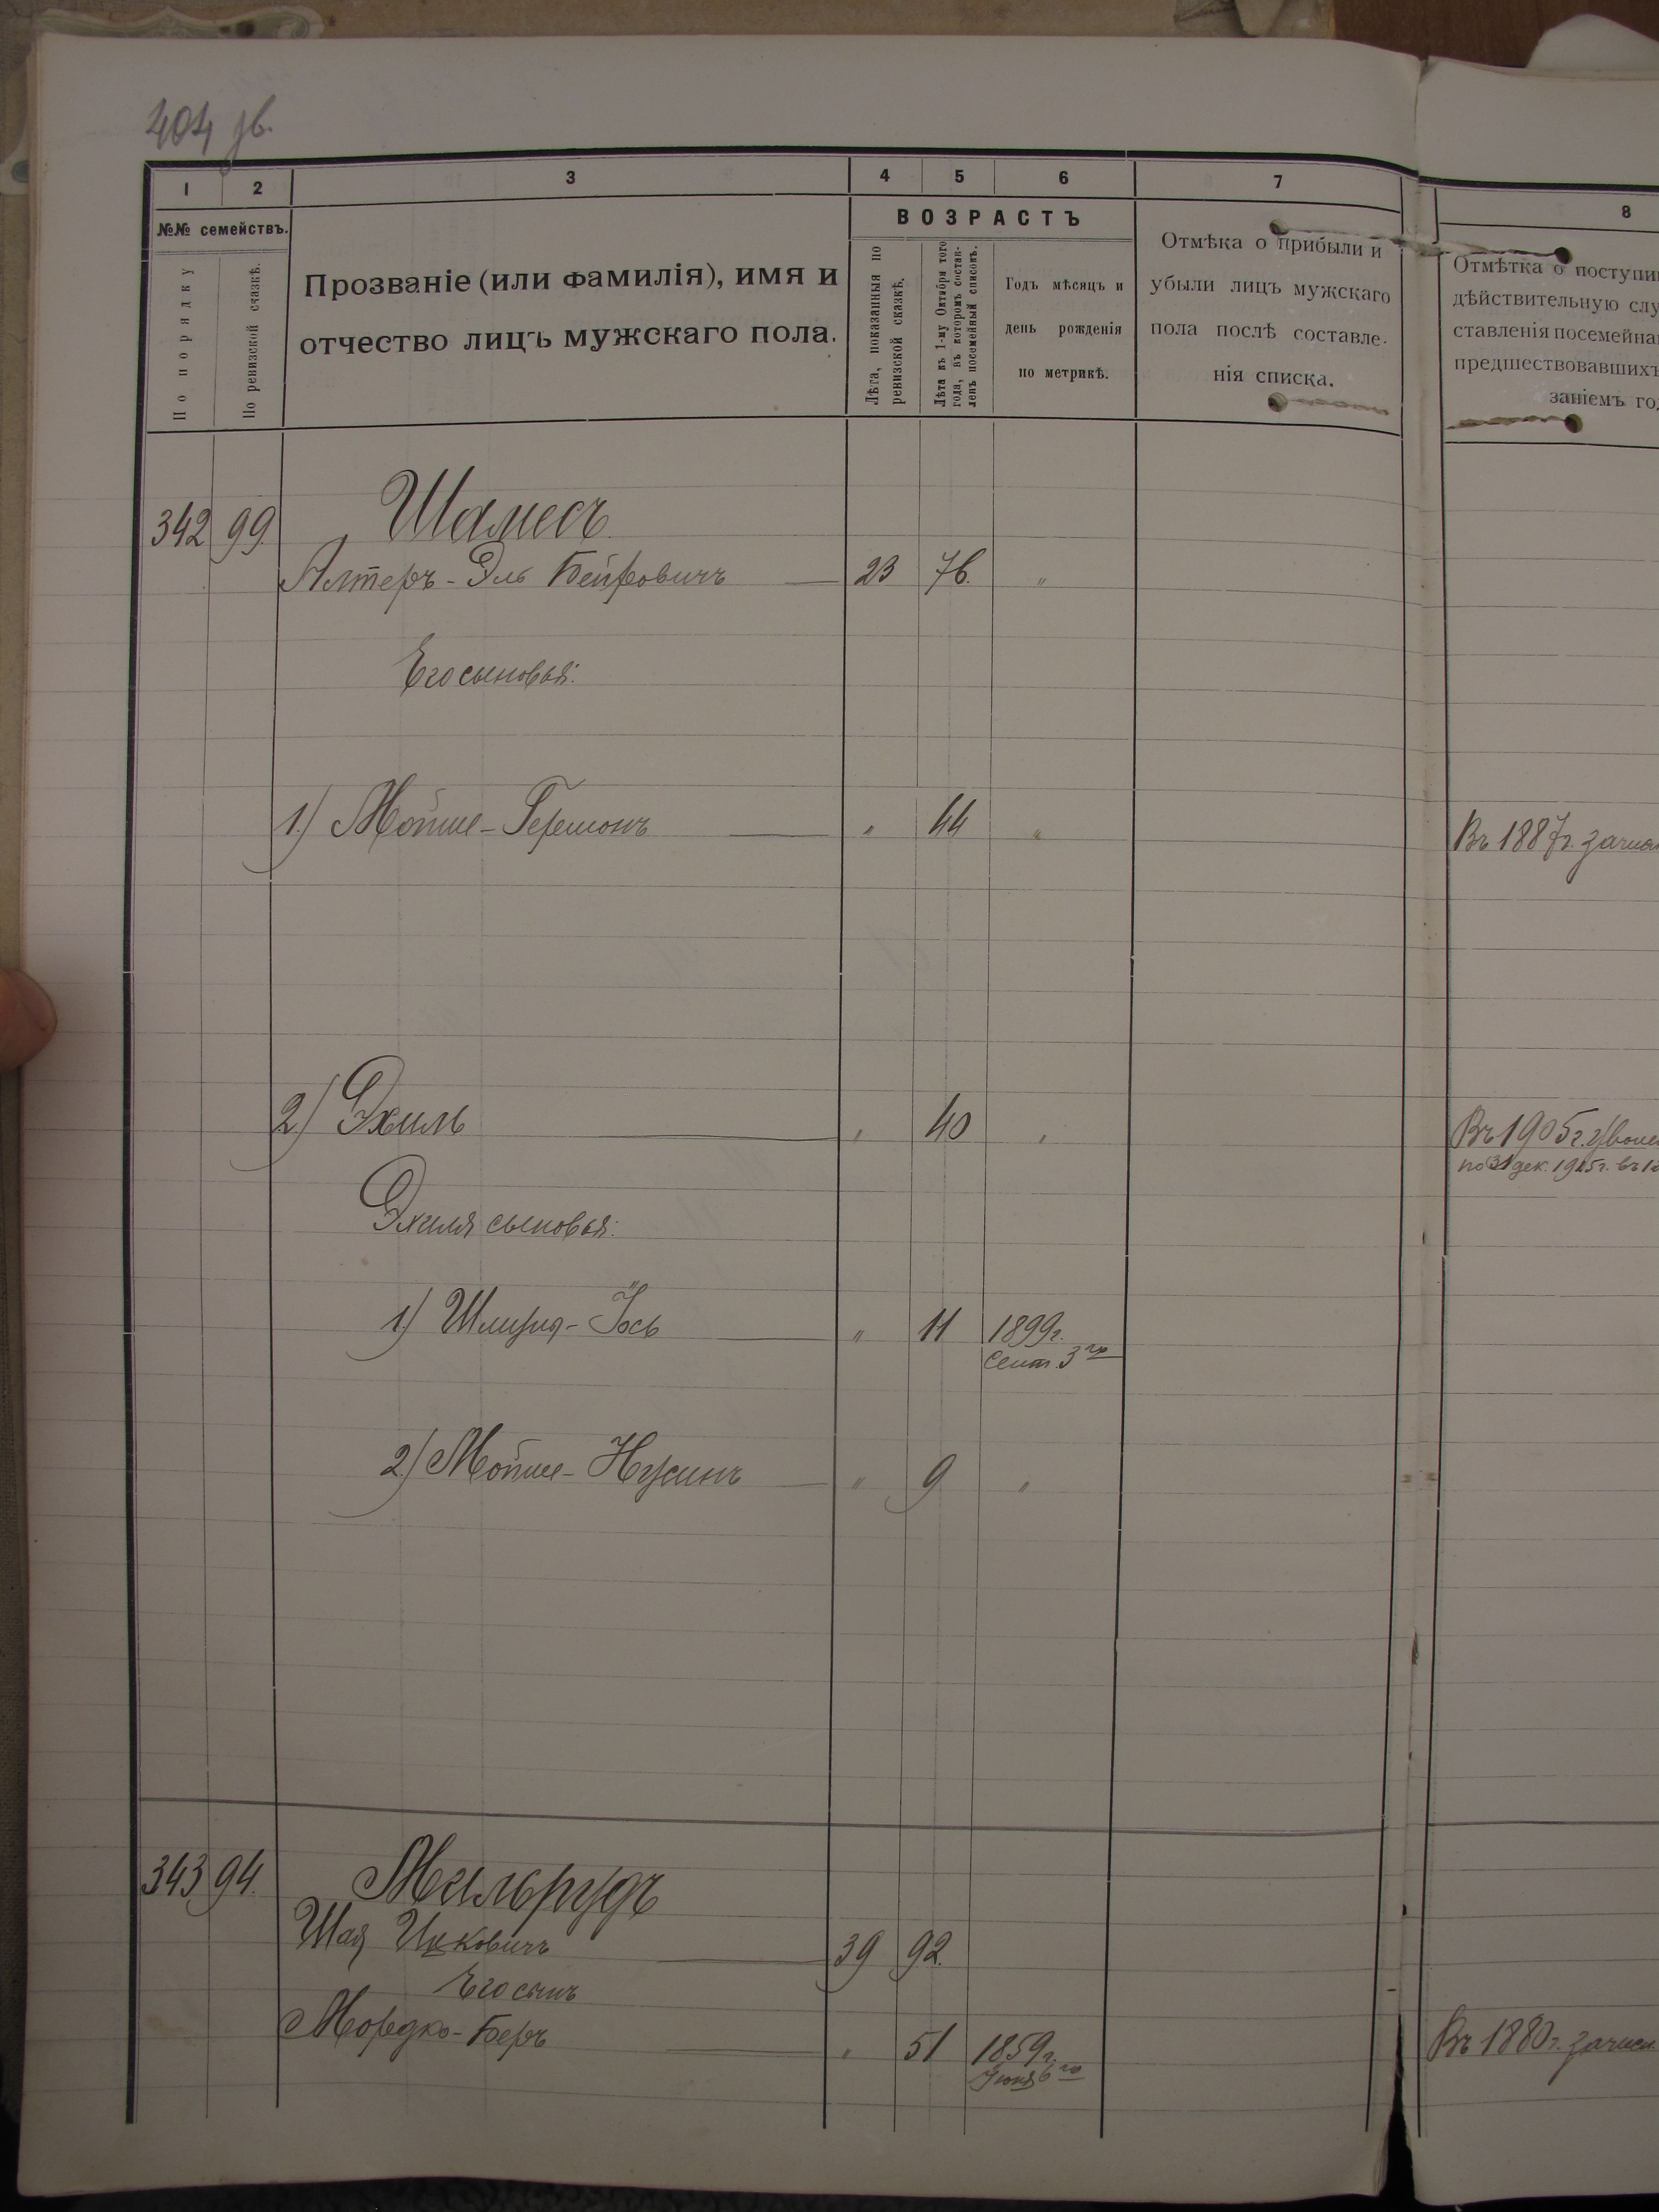 404 об.
1 2 3 4 5 6 7 8
№№ семействъ.
По порядку
По ревизской сказкѣ.
Прозваніе (или фамилія), имя и
отчество лицъ мужскаго пола.
ВОЗРАСТЪ
Лѣта, показанныя по
ревизской сказкѣ.
Лѣта къ 1-му Октября того
года, въ которомъ состав-
ленъ посемейный списокъ.
Годъ мѣсяцъ и
день рожденія
по метрикѣ.
Отмѣка о прибыли и
убыли лицъ мужскаго
пола послѣ составле-
нія списка.
Отмѣтка о поступи
дѣйствительную слу
ставленія посемейна
предшествовавшихъ
заніемъ го
342 99. Шамесъ
Алтеръ-Эль Бейровичъ 23 76. "
Его сыновья:
1.) Мойше-Гершонъ " 44 " Въ 1887г. зачис
2.) Эхиль " 40 " Въ 1905г.
по 31 дек. 1915г. въ
Эхиля сыновья:
1.) Шлиума-Іось " 11 1899г.
Сент. 3го
2.) Мойше-Нусинъ " 9 "
343 94. Мильрудъ
Шая Ицковичъ 39 92.
Его сынъ
Мордко-Беръ " 51 1859г. Въ 1880г. зачисл
Іюня 6го